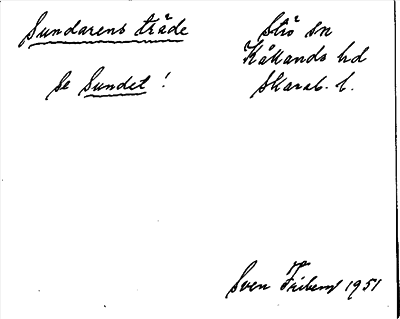 Sundarens träde
Se Sundet!
Strö sn
Kållands hd
Skarab. l.
Sven Friberg 1951